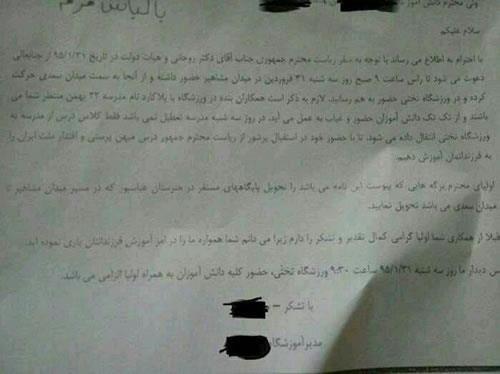 با لباس فرم
ولی محترم دانش آموز
سلام علیکم
با احترام به اطلاع می رساند با توجه به سفر ریاست محترم جمهوری جناب آقای دکتر روحانی و هیات دولت در تاریخ ۹۵/۱/۳۱ از جنابعالی
دعوت می شود تا راس ساعت ۹ صبح روز سه شنبه ۳۱ فروردین در میدان مشاهیر حضور داشته و از آنجا به سمت میدان سعدی حرکت
کرده و در ورزشگاه تختی حضور به هم رسانید. لازم به ذکر است همکاران بنده در ورزشگاه با پلاکارد نام مدرسه ۲۲ بهمن منتظر شما می
باشند و از تک تک دانش آموزان حضور و غیاب به عمل می آید. در روز سه شنبه مدرسه تعطیل نمی باشد فقط کلاس درس از مدرسه به
ورزشگاه تختی انتقال داده می شود. تا با حضور خود در استقبال پرشور از ریاست محترم جمهور درس میهن پرستی و اقتدار ملت ایران را
به فرزندانمان آموزش دهیم.
اولیای محترم برگه هایی که پیوست این نامه می باشد را تحویل پایگاههای مستقر در هنرستان عباسپور که در مسیر میدان مشاهیر تا
میدان سعدی می باشد تحویل نمایید.
قبلا از همکاری شما اولیا گرامی کمال تقدیر و تشکر را دارم زیرا می دانم شما همواره ما را در امر آموزش فرزندانتان یاری نموده اید.
پس دیدار ما روز سه شنبه ۹۵/۱/۳۱ ساعت ۹:۳۰ ورزشگاه تختی، حضور کلیه دانش آموزان به همراه اولیا الزامی می باشد.
با تشکر -
مدیر آموزشگاه